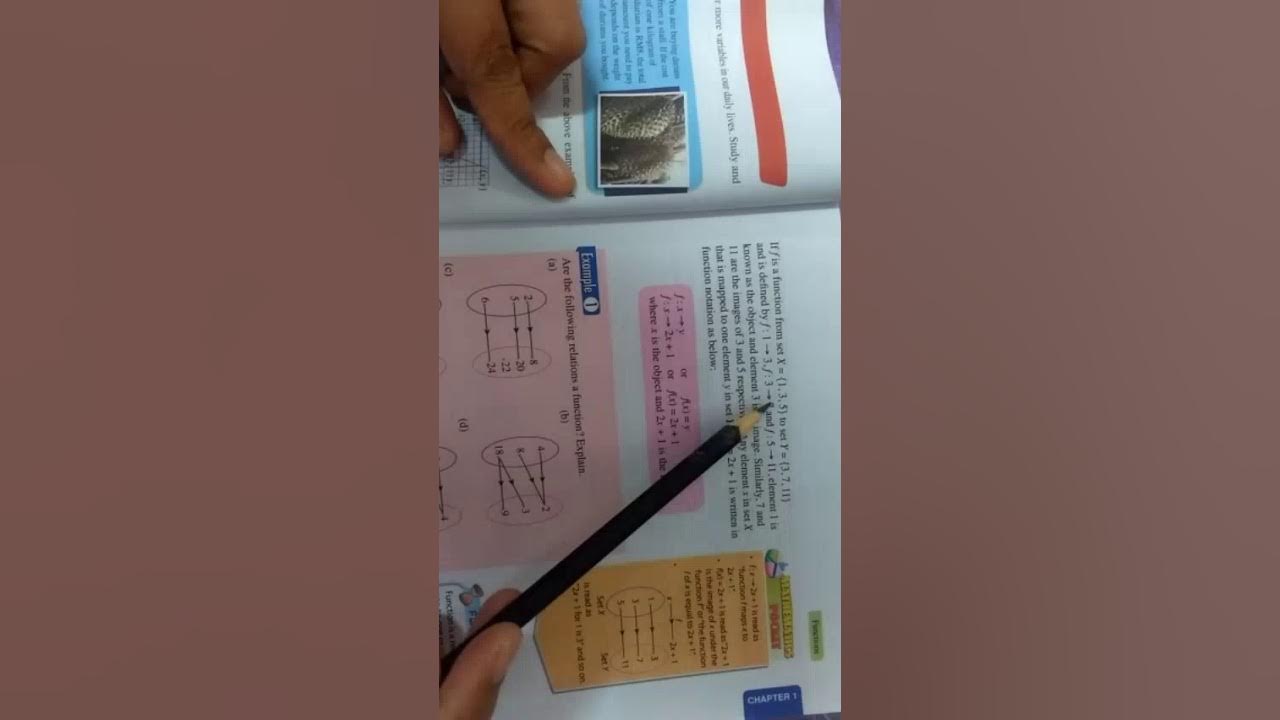 r more variables in our daily lives. Study and
You are buying durians
from a stall. If the cost
of one kilogram of
durian is RM8, the total
amount you need to pay
depends on the weight
of durians you bought.
From the above
Functions
If f is a function from set X = {1, 3, 5} to set Y = {3, 7, 11}
and is defined by f : 1 → 3, f : 3 → and f : 5 → 11, element 1 is
known as the object and element 3 image. Similarly, 7 and
11 are the images of 3 and 5 element x in set X
that is mapped to one element y in set = 2x + 1 is written in
function notation as below;
f : x → y or f(x) = y
f : x → 2x + 1 or f(x) = 2x + 1
where x is the object and 2x + 1 is the
Example 1
Are the following relations a function? Explain.
(a)
2 8
5 20
22
6 24
(b)
4 2
8 3
18 9
(c)
(d)
4
POCKET
• f : x → 2x + 1 is read as
"function f maps x to
2x + 1".
• f(x) = 2x + 1 is read as "2x + 1
is the image of x under the
function f" or "the function
f of x is equal to 2x + 1".
•
x f 2x + 1
1 3
3 7
5 11
Set X Set Y
is read as
"2x + 1 for 1 is 3" and so on.
CHAPTER 1